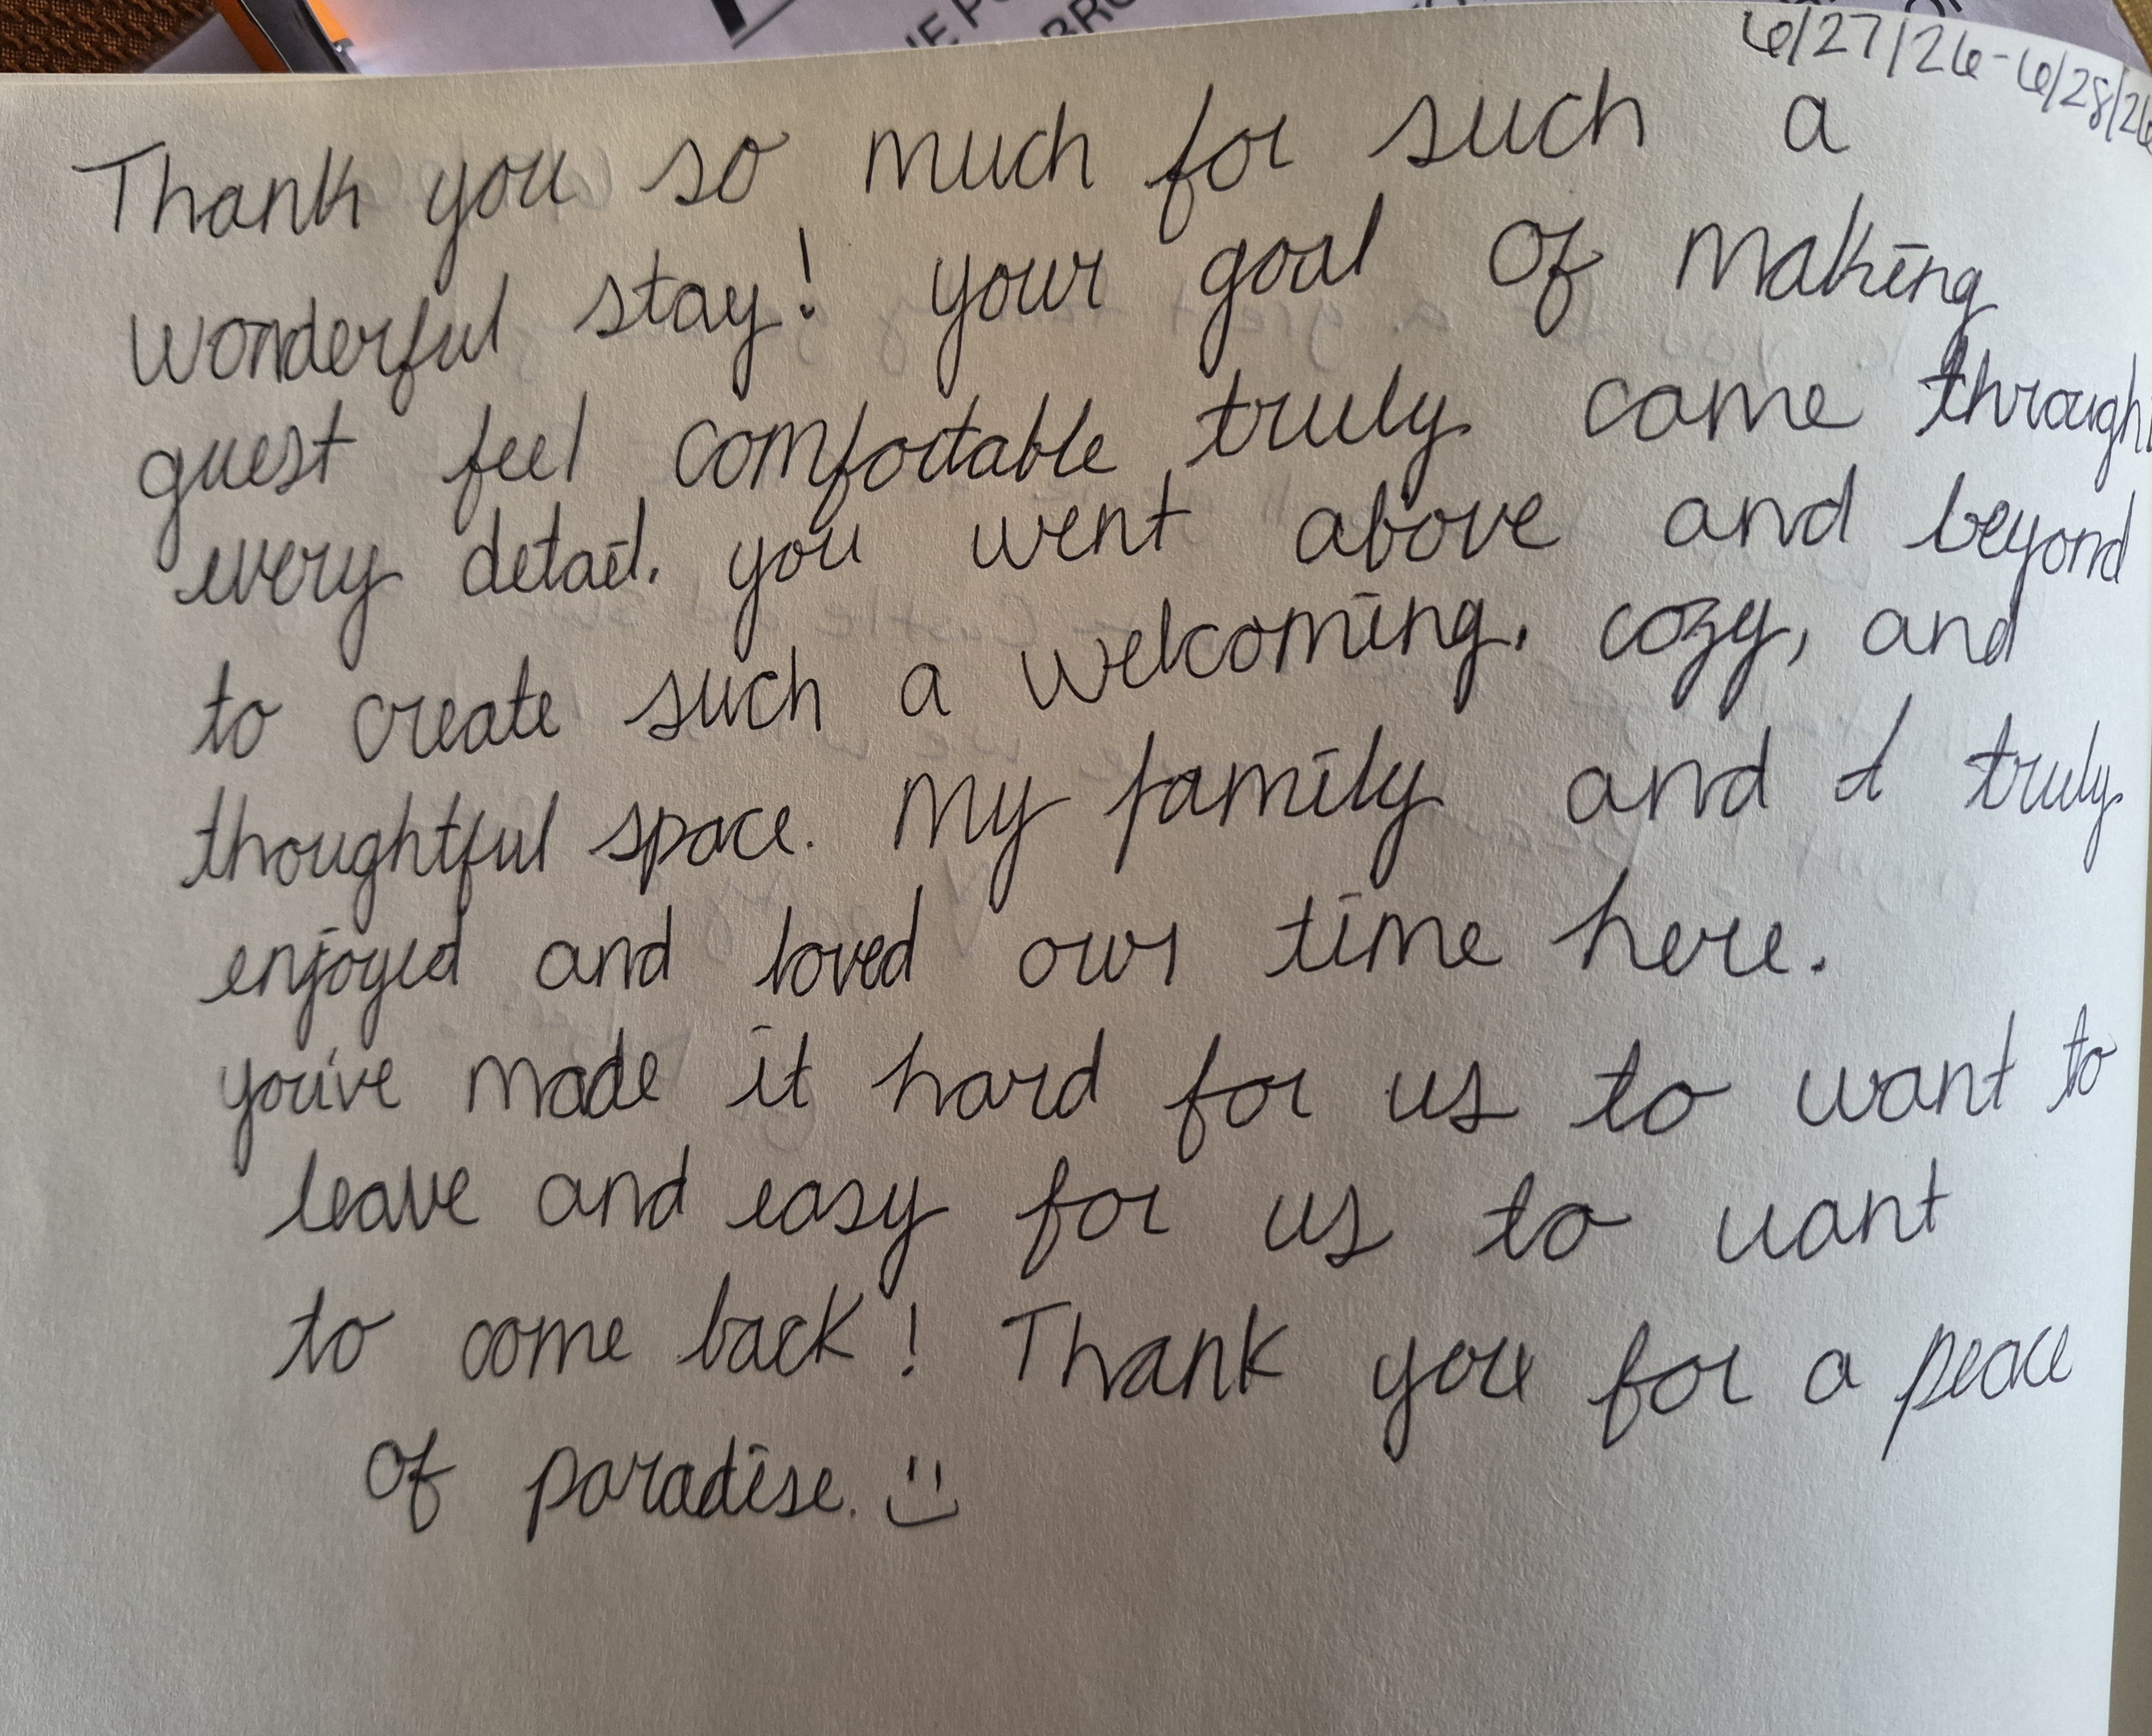 6/27/26-6/28/26
Thank you so much for such a
wonderful stay! your goal of making
guest feel comfortable truly came through
every detail. you went above and beyond
to create such a welcoming, cozy, and
thoughtful space. My family and I truly
enjoyed and loved our time here.
you've made it hard for us to want to
leave and easy for us to want
to come back! Thank you for a peace
of paradise.